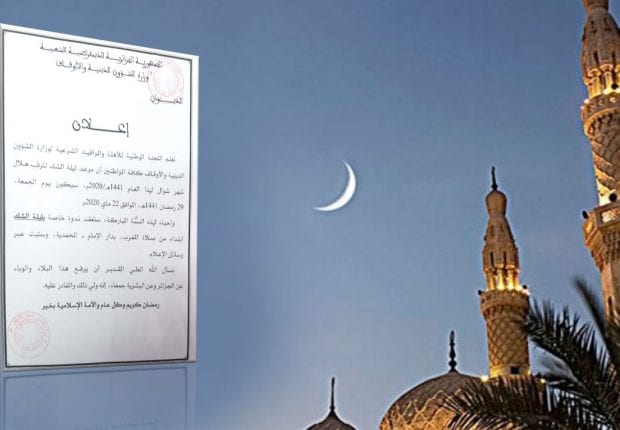 الجمهورية الجزائرية الديمقراطية الشعبية
وزارة الشؤون الدينية والأوقاف
الديـــوان
إعـــلان
تعلم اللجنة الوطنية للأهلة والمواقيت الشرعية لوزارة الشؤون
الدينية والأوقاف كافة المواطنين أن موعد ليلة الشك لترقب هلال
شهر شوال لهذا العام 1441هـ/2020م، سيكون يوم الجمعة،
29 رمضان 1441هـ، الموافق 22 ماي 2020م.
وإحياء لهذه السنّة المباركة، ستعقد ندوة خاصة بليلة الشك
إبتداء من صلاة المغرب، بدار الإمام ـ المحمدية، وستبث عبر
وسائل الإعلام.
نسأل الله العلي القدير أن يرفع هذا البلاء والوباء
عن الجزائر وعن البشرية جمعاء، إنه ولي ذلك والقادر عليه.
رمضان كريم وكل عام والأمة الإسلامية بخير